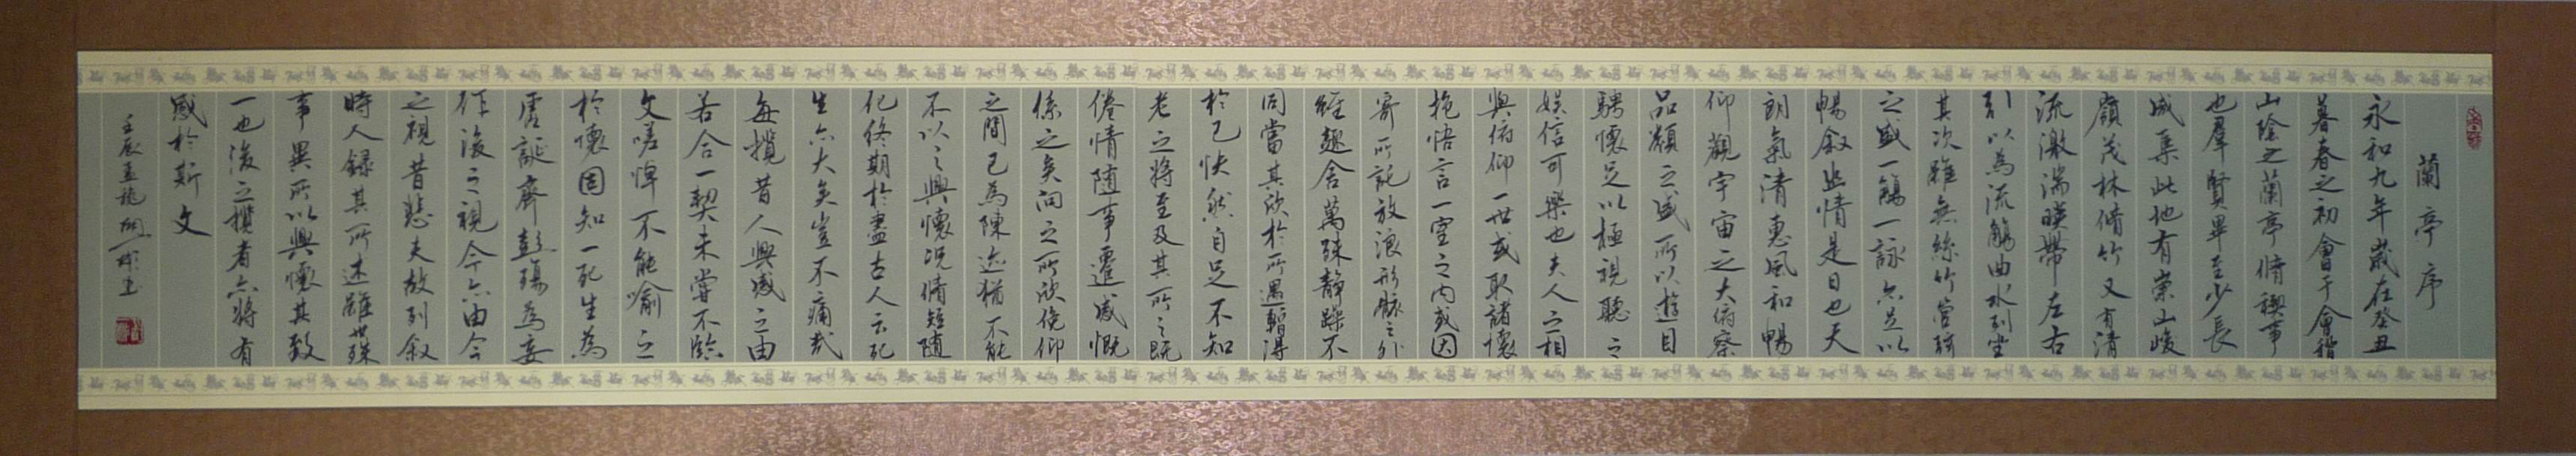 蘭亭序
永和九年歲在癸丑
暮春之初會于會稽
山陰之蘭亭脩禊事
也羣賢畢至少長
咸集此地有崇山峻
嶺茂林脩竹又有清
流激湍暎帶左右
引以為流觴曲水列坐
其次雖無絲竹管弦
之盛一觴一詠亦足以
暢敘幽情是日也天
朗氣清惠風和暢
仰觀宇宙之大俯察
品類之盛所以遊目
騁懷足以極視聽之
娛信可樂也夫人之相
與俯仰一世或取諸懷
抱悟言一室之內或因
寄所託放浪形骸之外
雖趣舍萬殊靜躁不
同當其欣於所遇暫得
於己快然自足不知
老之將至及其所之既
倦情隨事遷感慨
係之矣向之所欣俛仰
之間已為陳迹猶不能
不以之興懷況脩短隨
化終期於盡古人云死
生亦大矣豈不痛哉
每攬昔人興感之由
若合一契未嘗不臨
文嗟悼不能喻之
於懷固知一死生為
虛誕齊彭殤為妄
作後之視今亦由今
之視昔悲夫故列敘
時人錄其所述雖世殊
事異所以興懷其致
一也後之攬者亦將有
感於斯文